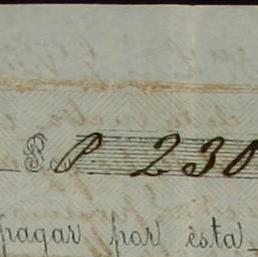 P P 230
pagar por esta